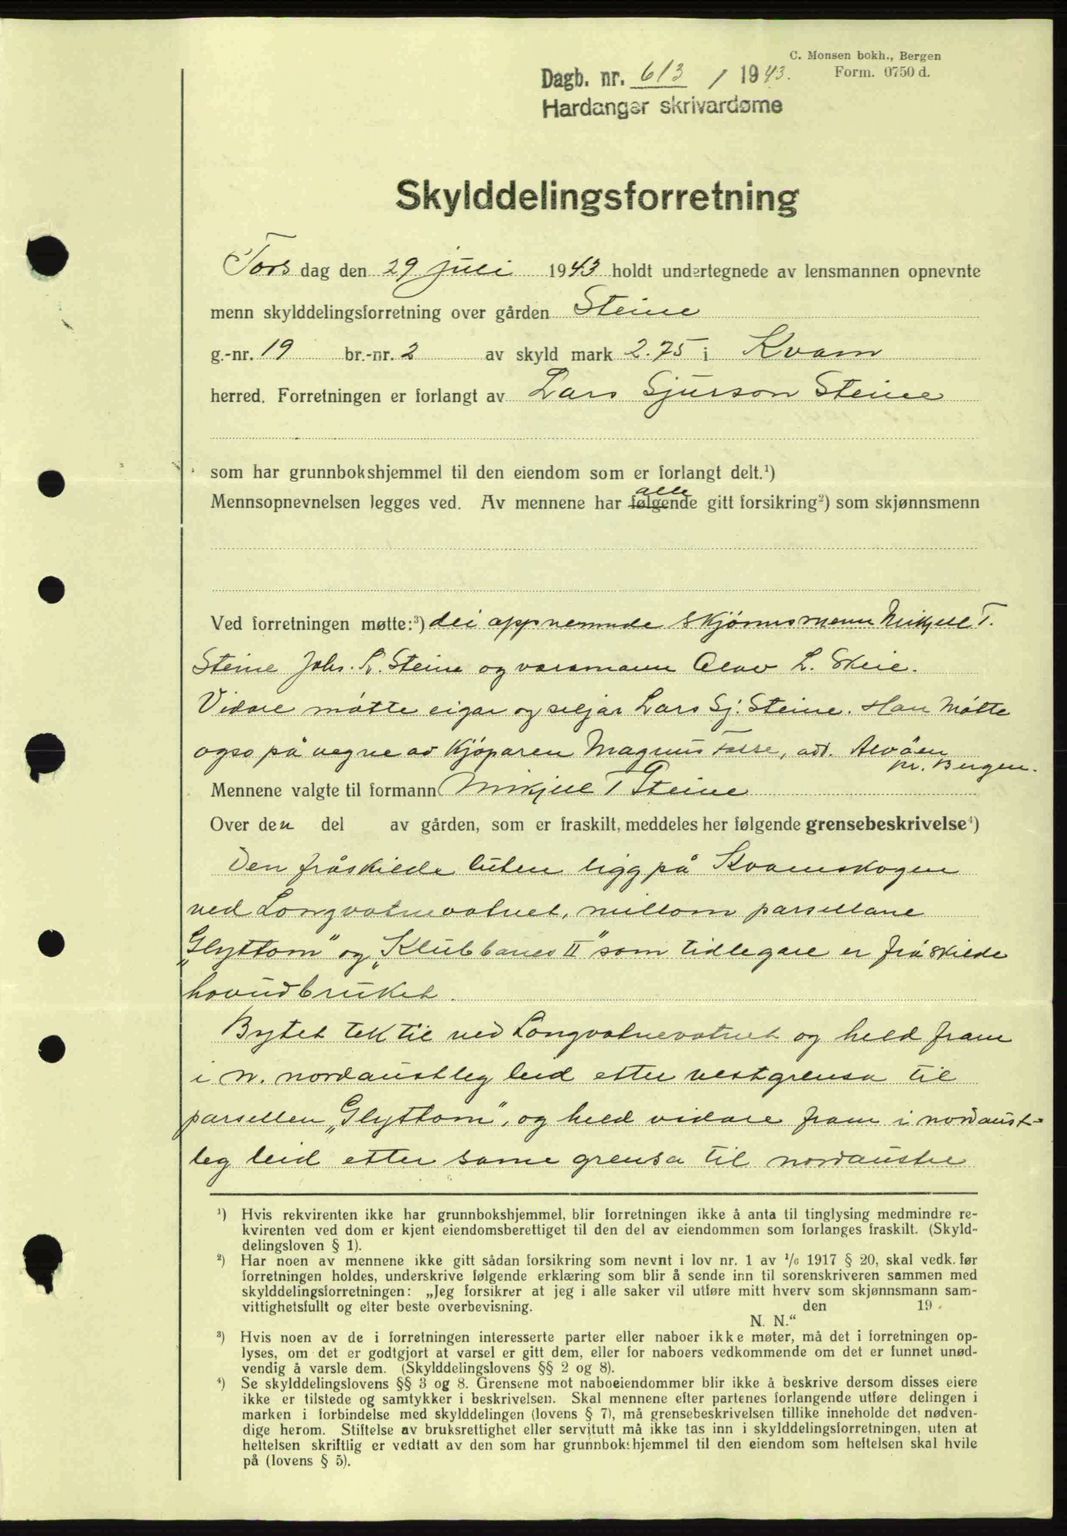 C. Monsen bokh., Bergen
Form. 0750 d.
Dagb. nr. 613 / 1943.
Hardanger skrivardøme
Skylddelingsforretning
Tors dag den 29 juli 1943 holdt undertegnede av lensmannen opnevnte
menn skylddelingsforretning over gården Steine
g.-nr. 19 br.-nr. 2 av skyld mark 2.75 i Kvam
herred. Forretningen er forlangt av Lars Sjurson Steine
som har grunnbokshjemmel til den eiendom som er forlangt delt.¹)
alle
Mennsopnevnelsen legges ved. Av mennene har følgende gitt forsikring²) som skjønnsmenn
Ved forretningen møtte:³) dei oppnemnde skjønnsmenn Mikjell T.
Steine Johs. L. Steine og varamann Olav L. Skeie.
Vidare møtte eigar og seljar Lars Sj. Steine. Han møtte
også på vegne av kjøparen Magnus Fosse, adr. Alvøen
pr. Bergen.
Mennene valgte til formann Mikjell T Steine
Over den del av gården, som er fraskilt, meddeles her følgende grensebeskrivelse⁴)
Den fråskilde luten ligg på Kvamskogen
ved Longvatnevatnet, millom parsellane
„Glyttom" og „Klubbanes II" som tidlegare er fråskilde
hovudbruket.
Bytet tek til ved Longvatnevatnet og held fram
i n. nordaustleg leid etter vestgrensa til
parsellen „Glyttom", og held vidare fram i nordaust-
leg leid etter same grensa til nordaustre
¹) Hvis rekvirenten ikke har grunnbokshjemmel, blir forretningen ikke å anta til tinglysing medmindre re-
kvirenten ved dom er kjent eiendomsberettiget til den del av eiendommen som forlanges fraskilt. (Skyld-
delingsloven § 1).
²) Har noen av mennene ikke gitt sådan forsikring som nevnt i lov nr. 1 av 1/6 1917 § 20, skal vedk. før
forretningen holdes, underskrive følgende erklæring som blir å sende inn til sorenskriveren sammen med
skylddelingsforretningen: „Jeg forsikrer at jeg i alle saker vil utføre mitt hverv som skjønnsmann sam-
vittighetsfullt og efter beste overbevisning. den 19 .
N. N.“
³) Hvis noen av de i forretningen interesserte parter eller naboer ikke møter, må det i forretningen op-
lyses, om det er godtgjort at varsel er gitt dem, eller for naboers vedkommende om det er funnet unød-
vendig å varsle dem. (Skylddelingslovens §§ 2 og 8).
⁴) Se skylddelingslovens §§ 3 og 8. Grensene mot naboeiendommer blir ikke å beskrive dersom disses eiere
ikke er tilstede og samtykker i beskrivelsen. Skal mennene efter partenes forlangende utføre delingen i
marken i forbindelse med skylddelingen (lovens § 7), må grensebeskrivelsen tillike inneholde det nødven-
dige herom. Stiftelse av bruksrettighet eller servitutt må ikke tas inn i skylddelingsforretningen, uten at
heftelsen skriftlig er vedtatt av den som har grunnbokshjemmel til den eiendom som heftelsen skal hvile
på (lovens § 5).